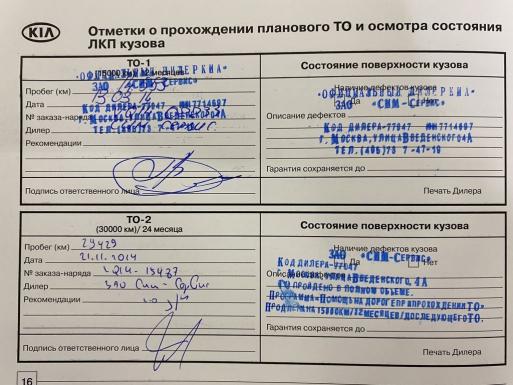 KIA
Отметки о прохождении планового ТО и осмотра состояния
ЛКП кузова
ТО-1
(15000 км) 12 месяцев
Пробег (км)
Дата 13.03.14
№ заказа-наряда
Дилер Сервис
Рекомендации
«ОФИЦИАЛЬНЫЙ ДИЛЕР КИА»
ЗАО «СИМ-СЕРВИС»
КОД ДИЛЕРА-77047
Г. МОСКВА, УЛИЦА ВВЕДЕНСКОГО 4А
Подпись ответственного лица
Состояние поверхности кузова
Наличие дефектов кузова
Да Нет
Описание дефектов
«ОФИЦИАЛЬНЫЙ ДИЛЕР КИА»
ЗАО «СИМ-СЕРВИС»
КОД ДИЛЕРА-77047
Г. МОСКВА, УЛИЦА ВВЕДЕНСКОГО 4А
ТЕЛ. (495)
Гарантия сохраняется до
Печать Дилера
ТО-2
(30000 км)/ 24 месяца
Пробег (км) 29429
Дата 21.11.2014
№ заказа-наряда
Дилер ЗАО Сим-Сервис
Рекомендации
Подпись ответственного лица
Состояние поверхности кузова
Наличие дефектов кузова
Да Нет
Описание
ЗАО «СИМ-СЕРВИС»
КОД ДИЛЕРА-77047
Г. МОСКВА, УЛИЦА ВВЕДЕНСКОГО, 4А
ТО ПРОЙДЕНО В ПОЛНОМ ОБЪЕМЕ.
ПРОГРАММА «ПОМОЩЬ НА ДОРОГЕ ПРИ ПРОХОЖДЕНИИ ТО»
ПРОДЛЕНА НА 15000КМ/12МЕСЯЦЕВ/ДО СЛЕДУЮЩЕГО ТО.
Гарантия сохраняется до
Печать Дилера
16